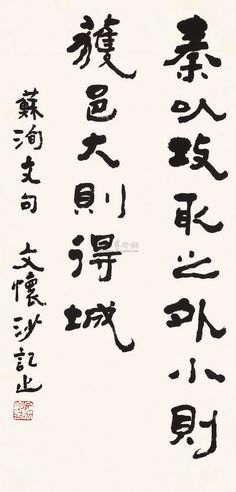 秦以攻取之外小則
獲邑大則得城
蘇洵文句 文懷沙記止